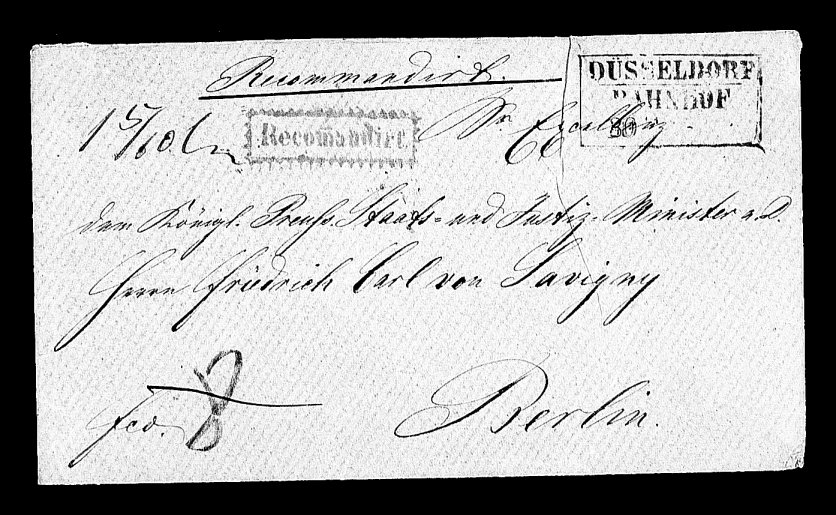 Recommandirt.
DÜSSELDORF
BAHNHOF
Recomandirt
Sr. Excellenz
dem Königl. Preuß. Staats- und Justiz-Minister a. D.
Herrn Friedrich Carl von Savigny
Berlin.
fco. 8